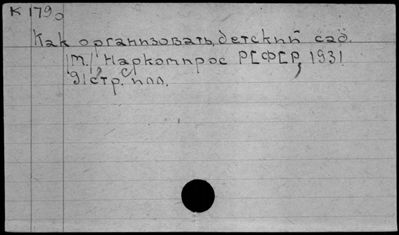 К 179
Как организовать детский сад.
[М.], Наркомпрос РСФСР, 1931
91 стр. с илл.